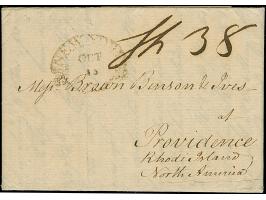 NEW YORK
OCT
Sh 38
Mess Brown Benson & Ives
at
Providence
Rhode Island
North America